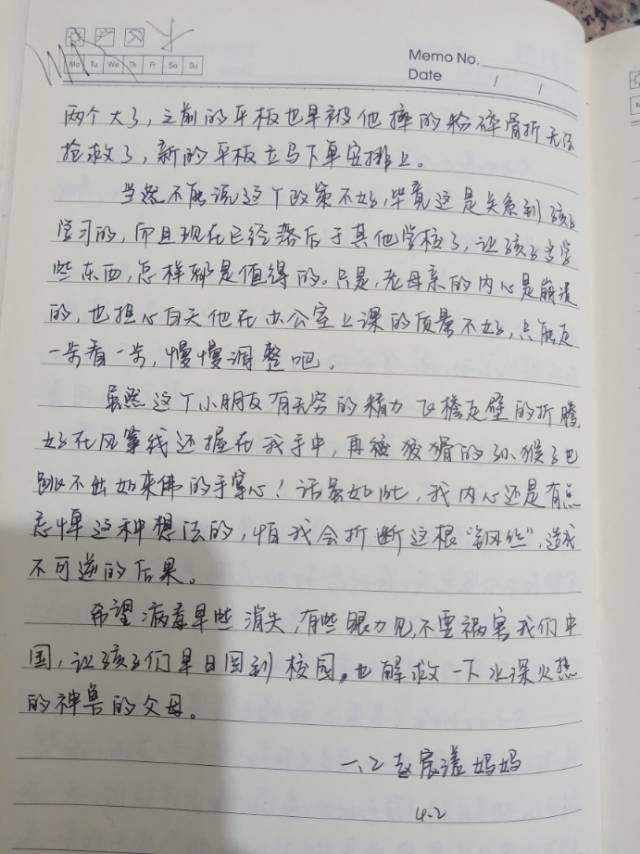 Mo Tu We Th Fr Sa Su
Memo No.
Date / /
两个大了，之前的平板也早被他摔的粉碎骨折无法
抢救了，新的平板立马下单安排上。
当然不能说这个政策不好，毕竟这是关系到孩子
学习的，而且现在已经落后于其他学校了，让孩子多学
些东西，怎样都是值得的。只是，老母亲的内心是崩溃
的，也担心白天他在办公室上课的质量不好，只能走
一步看一步，慢慢调整吧。
虽然这个小朋友有无穷的精力飞檐走壁的折腾，
好在风筝线还握在我手中，再狡猾的孙猴子也
跳不出如来佛的手掌心！话虽如此，我内心还是有点
忌惮这种想法的，怕我会折断这根“钢丝”，造成
不可逆的后果。
希望病毒早些消失，有些眼力见，不要祸害我们中
国，让孩子们早日回到校园，也解救一下水深火热
的神兽的父母。
一、2 赵宸漾妈妈
4.2